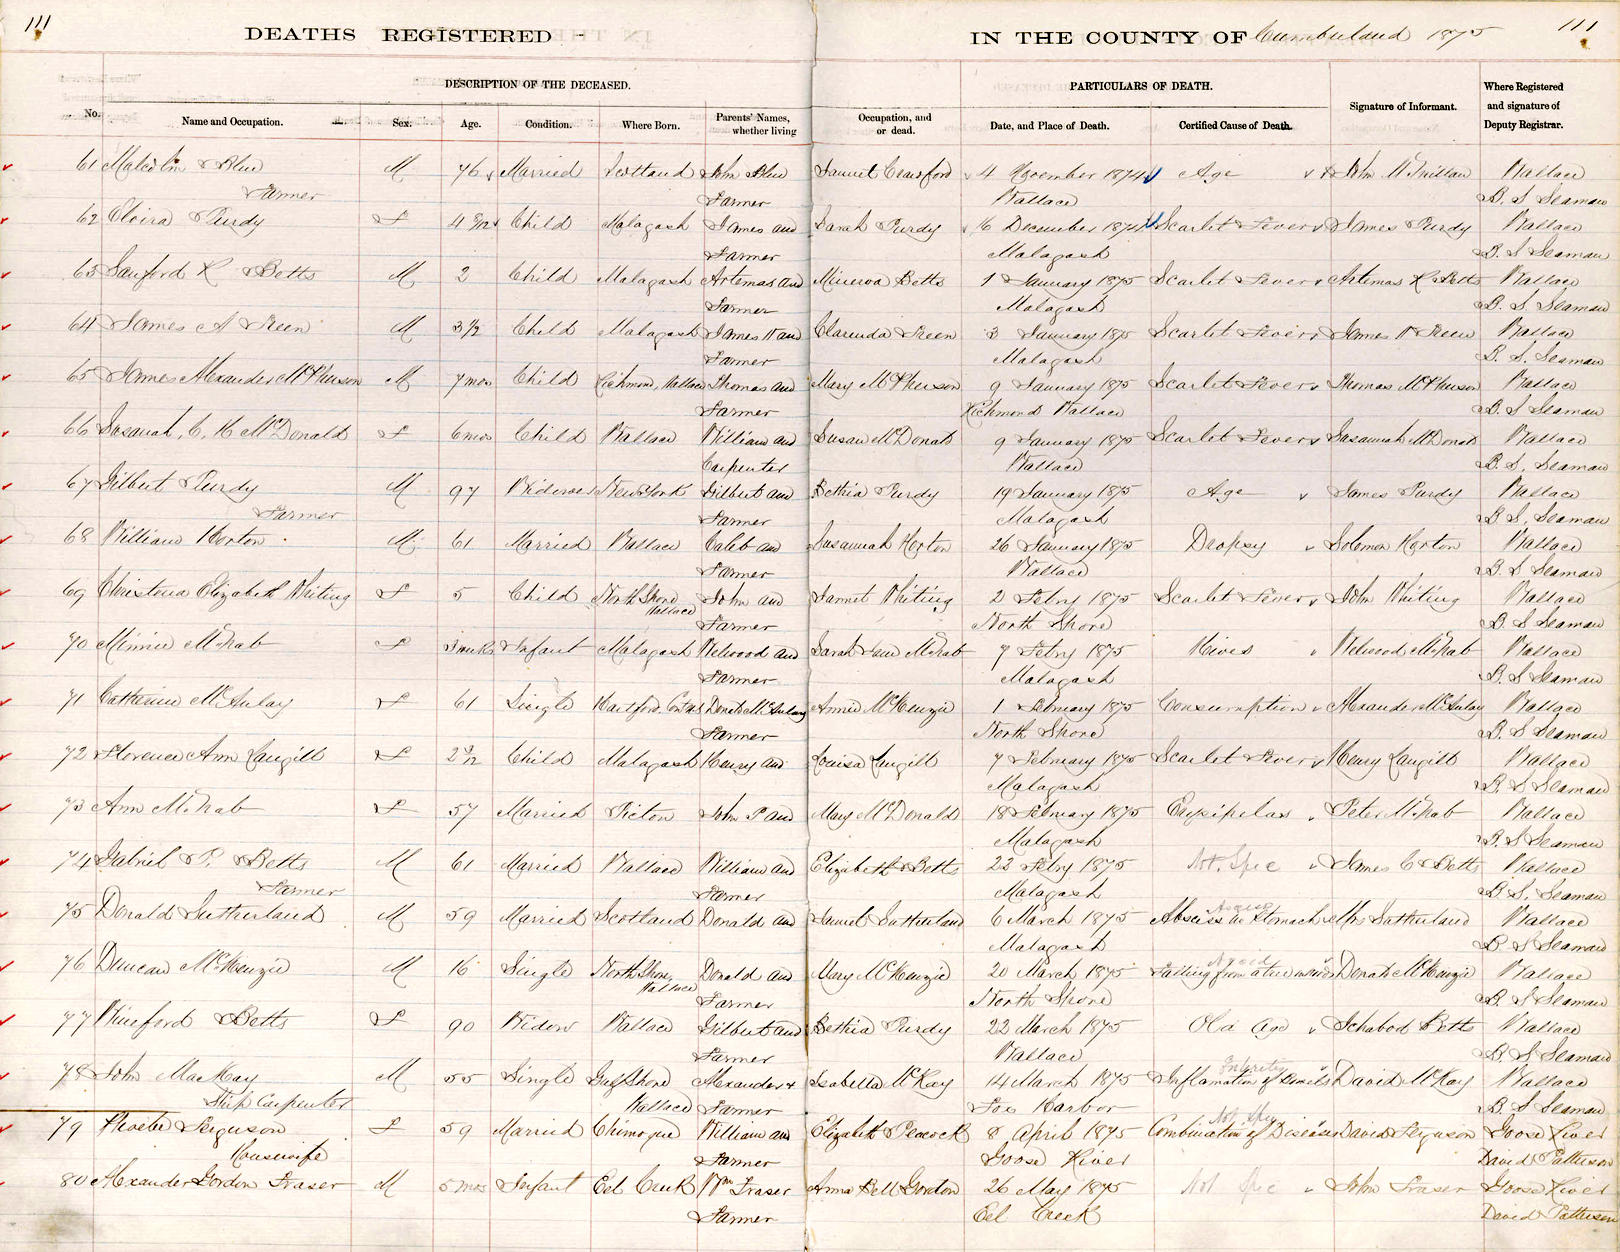 111
DEATHS REGISTERED
IN THE COUNTY OF Cumberland 1875
111
DESCRIPTION OF THE DECEASED.
PARTICULARS OF DEATH.
No. Name and Occupation. Sex. Age. Condition. Where Born. Parents' Names, whether living Occupation, and or dead. Date, and Place of Death. Certified Cause of Death. Signature of Informant. Where Registered and signature of Deputy Registrar.
61 Malcolm Blue M 76 Married Scotland John Blue Crawford 4 November 1874 Age John Wallace
Farmer Farmer Wallace B. S. Seaman
62 Elvira Purdy F 4 8/12 Child Malagash James and Sarah Purdy 16 December 1874 Scarlet Fever James Purdy Wallace
Farmer Malagash B. S. Seaman
63 Sanford R Betts M 2 Child Malagash Artemas and Minerva Betts 1 January 1875 Scarlet Fever Artemas R Betts Wallace
Farmer Malagash B. S. Seaman
64 James A Treen M 3 1/2 Child Malagash James W and Clarinda Treen 3 January 1875 Scarlet Fever James W Treen Wallace
Farmer Malagash B. S. Seaman
65 James Alexander McPherson M 7 mos Child Richmond, Wallace Thomas and Mary McPherson 9 January 1875 Scarlet Fever Thomas McPherson Wallace
Farmer Richmond Wallace B. S Seaman
66 Susanah, C, H McDonald F 6 mos Child Wallace William and Susan McDonald 9 January 1875 Scarlet Fever Susannah McDonald Wallace
Carpenter Wallace B. S. Seaman
67 Gilbert Purdy M 97 Widower New York Gilbert and Bethia Purdy 19 January 1875 Age James Purdy Wallace
Farmer Farmer Malagash B S. Seaman
68 William Horton M 61 Married Wallace Caleb and Susannah Horton 26 January 1875 Dropsy Solomon Horton Wallace
Farmer Wallace B. S Seaman
69 Christena Elizabeth Whiting F 5 Child North Shore Wallace John and Whiting 2 Febry 1875 Scarlet Fever John Whiting Wallace
Farmer North Shore B. S Seaman
70 Minnie McNab F 3 weeks Infant Malagash Welwood and Sarah Jane McNab 7 Febry 1875 Hives Welwood McNab Wallace
Farmer Malagash B. S. Seaman
71 Catherine McAulay F 61 Single Donald McAulay Annie McKenzie 1 February 1875 Consumption Alexander McAulay Wallace
Farmer North Shore B. S. Seaman
72 Florence Ann Langill F 2 9/12 Child Malagash Henry and Louisa Langill 7 February 1875 Scarlet Fever Henry Langill Wallace
Malagash B S. Seaman
73 Ann McNab F 57 Married Pictou John P and Mary McDonald 18 February 1875 Erysipelas Peter McNab Wallace
Malagash B. S Seaman
74 Gabriel P. Betts M 61 Married Wallace William and Elizabeth Betts 22 Febry 1875 Not. Spec James C Betts Wallace
Farmer Farmer Malagash B. S. Seaman
75 Donald Sutherland M 59 Married Scotland Donald and Sutherland 6 March 1875 Abscess in Stomach Mrs Sutherland Wallace
Malagash B S Seaman
76 Duncan McKenzie M 16 Single North Shore, Wallace Donald and Mary McKenzie 20 March 1875 Falling from a tree Donald McKenzie Wallace
Farmer North Shore B S Seaman
77 Wineford Betts F 90 Widow Wallace Gilbert and Bethia Purdy 22 March 1875 Old age Ichabod Betts Wallace
Farmer Wallace B S Seaman
78 John MacKay M 55 Single Gulf Shore Alexander & Isabella McKay 14 March 1875 Inflamation of Bowels David McKay Wallace
Ship Carpenter Wallace Farmer Fox Harbor B. S Seaman
Not Spec
79 Phoebe Ferguson F 59 Married William and Elizabeth Peacock 8 April 1875 Combination of Diseases David Ferguson Goose River
Housewife Farmer Goose River David Patterson
80 Alexander Gordon Fraser M 5 mos Infant Eel Creek Wm Fraser Anna Bell Gordon 26 May 1875 Not Spec John Fraser Goose River
Farmer Eel Creek David Patterson